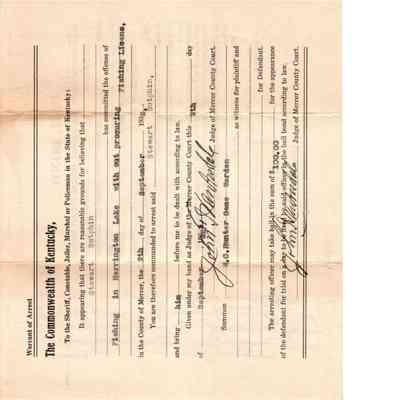 Warrant of Arrest
The Commonwealth of Kentucky,
To the Sheriff, Constable, Jailer, Marshal or Policeman in the State of Kentucky:
It appearing that there are reasonable grounds for believing that
Stewart Dotchin
has committed the offense of
Fishing in Herrington Lake with out procuring Fishing Licens,
in the County of Mercer, the 9th day of September
You are therefore commanded to arrest said Stewart Dotchin,
and bring him before me to be dealt with according to law.
Given under my hand as Judge of the Mercer County Court this 9th day
of September
Judge of Mercer County Court.
Summon Hunter Game Warden
as witness for plaintiff and
for Defendant.
The arresting officer may take bail in the sum of $100,00 for the appearance
of the defendant for trial on a day to be fixed by said officer in the bail bond according to law.
Judge of Mercer County Court.